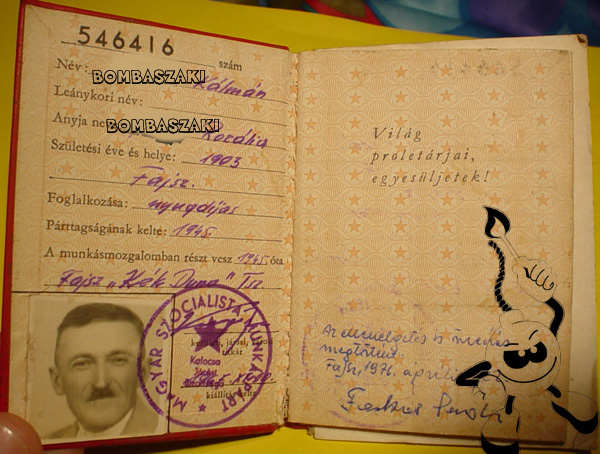 546416 szám
Név: BOMBASZAKI Kálmán
Leánykori név:
Anyja ne BOMBASZAKI Rozália
Születési éve és helye: 1903
Fajsz.
Foglalkozása: nyugdíjas
Párttagságának kelte: 1945.
A munkásmozgalomban részt vesz 1945 óta
Fajsz „Kék Duna" Tsz
MAGYAR SZOCIALISTA MUNKÁSPÁRT
Kalocsa
Járási
kiállítás kelte
Világ
proletárjai,
egyesüljetek!
Az elmélkedés is
megtörtént.
Fajsz, 1976.